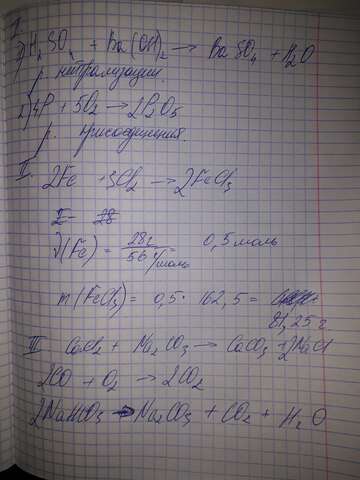 I
1) H₂SO₄ + Ba(OH)₂ → BaSO₄ + H₂O
р. нейтрализации.
2) 4P + 5O₂ → 2P₂O₅
р. присоединения.
II. 2Fe + 3Cl₂ → 2FeCl₃
ν(Fe) = 28г / 56 г/моль = 0,5 моль
m(FeCl₃) = 0,5 · 162,5 =
81,25 г
III CaCl₂ + Na₂CO₃ → CaCO₃ + 2NaCl
2CO + O₂ → 2CO₂
2NaHCO₃ → Na₂CO₃ + CO₂ + H₂O